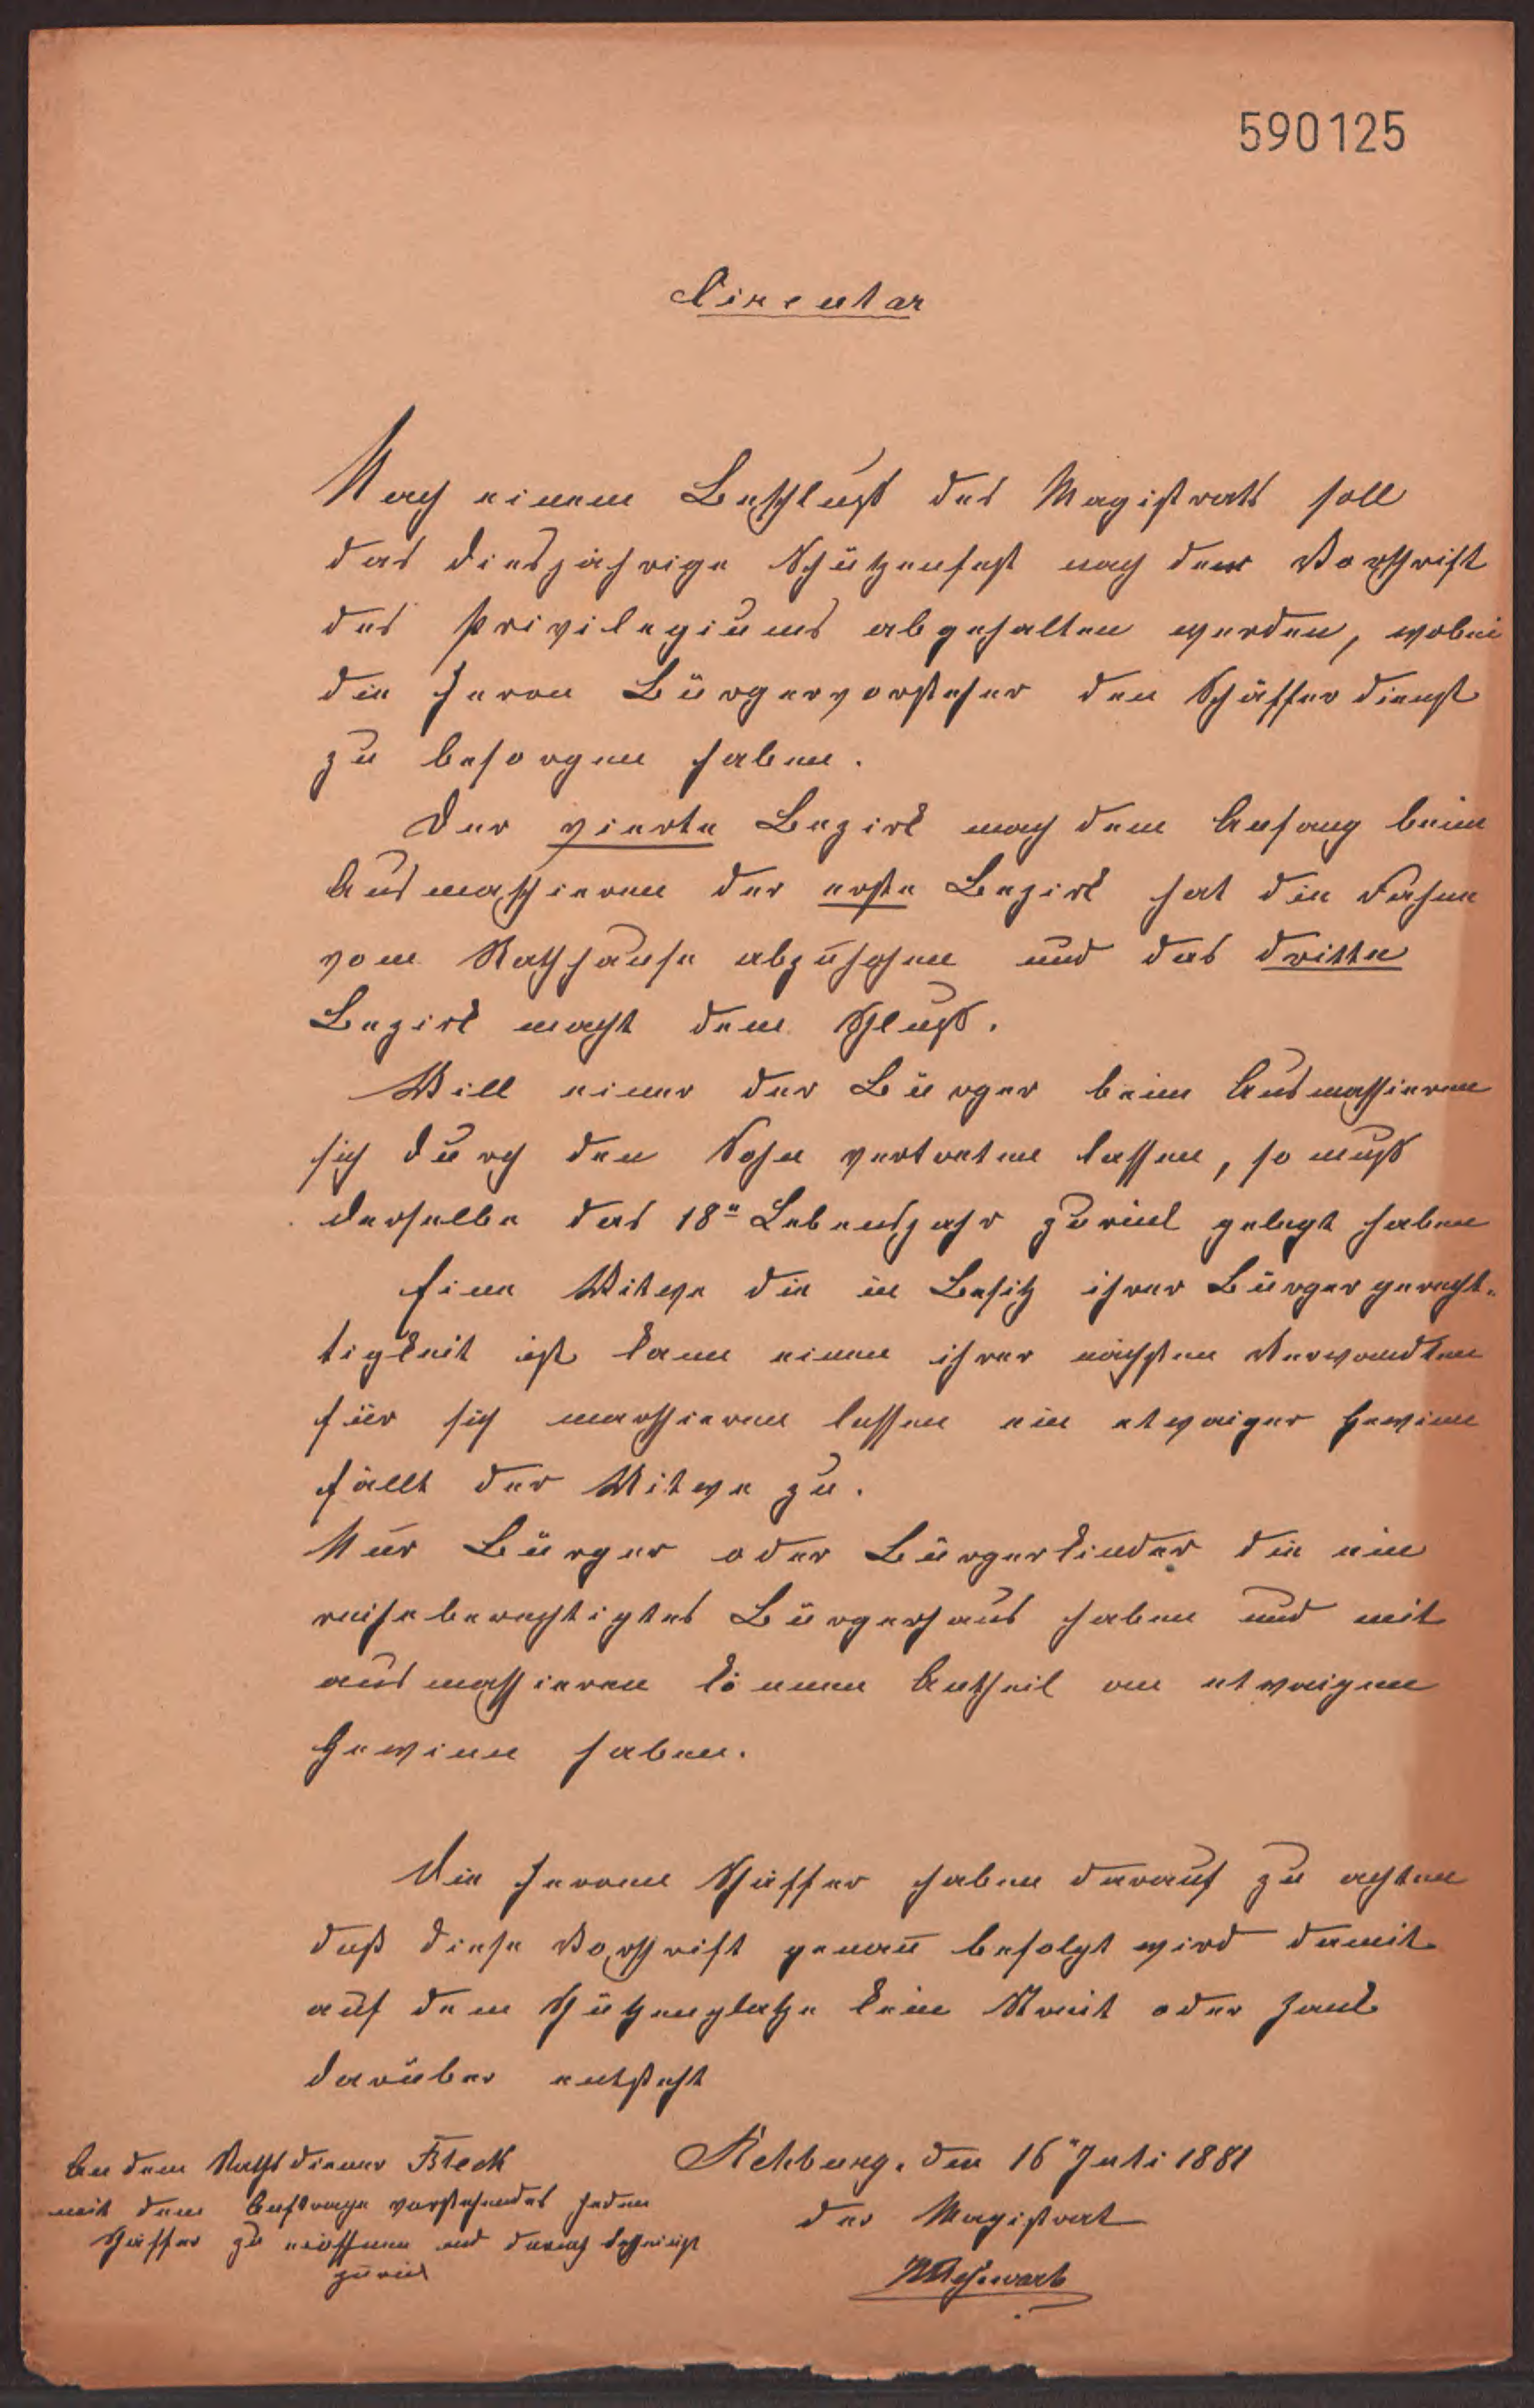 590125
Circular
Nach einem Beschluß des Magistrats soll
das diesjährige Schützenfest nach der Vorschrift
des Privilegiums abgehalten werden, wobei
die Herren Bürgervorsteher den Schäfferdienst
zu besorgen haben.
Der vierte Bezirk mach dem Anfang beim
Ausmaschieren der erste Bezirk hat die Fahne
vom Rathhause abzuhohen und das dritte
Bezirk macht dem Schluß.
Will einer der Bürger beim Ausmaschieren
sich durch den Sohn vertreten lassen, so muß
derselbe das 18te Lebensjahr zurück gelegt haben
Eine Witwe die in Besitz ihrer Bürgergerecht-
tigkeit ist kann einen ihrer nächsten Verwandten
für sich marschieren lassen ein etwaiger Gewinn
fällt der Witwe zu.
Nur Bürger oder Bürgerkinder die ein
reiheberechtigtes Bürgerhaus haben und mit
ausmaschieren können Antheil am etwaigen
Gewinn haben.
Die Herren Schäffer haben darauf zu achten
daß diese Vorschrift genau befolgt wird damit
auf dem Schützenplatze kein Streit oder Zank
darüber entsteht
Rehburg, den 16ten Juli 1881
der Magistrat
An dem Rathsdiener Bleck
mit dem Auftrage vorstehendes jeden
Schäffer zu eröffnen und danach bescheinigt
zurück